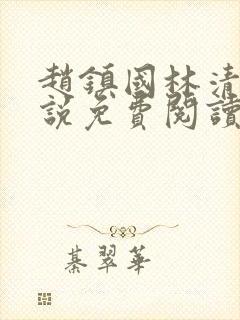 趙鎮國林清
說免費閱讀
綦翠華